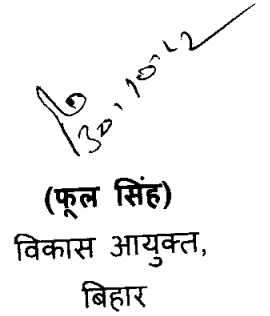 30.10.12
(फूल सिंह)
विकास आयुक्त,
बिहार